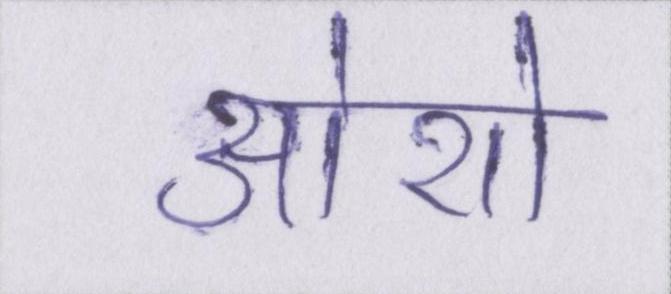 ओशो